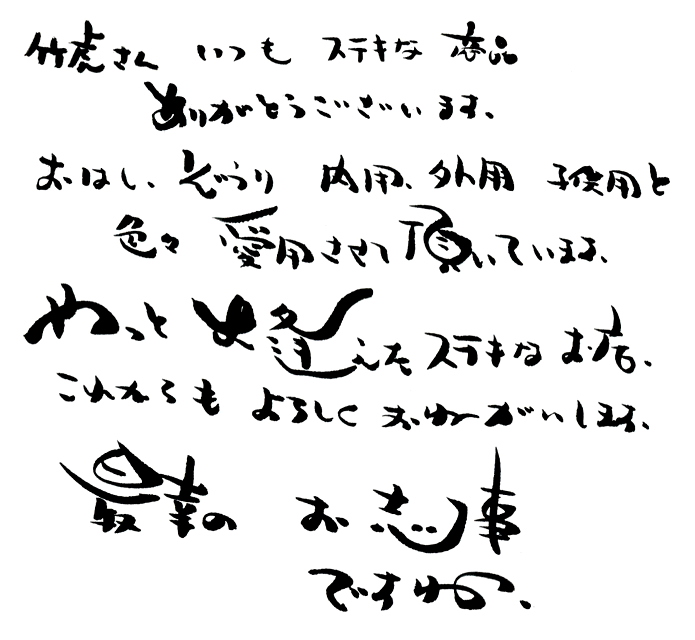 竹虎さん いつも ステキな 商品
ありがとうございます。
おはし、ぞうり 内用、外用 子供用と
色々 愛用させて頂いています。
やっと め逢えた ステキな お店、
これからも よろしく おねがいします。
最幸の お志事
ですね。